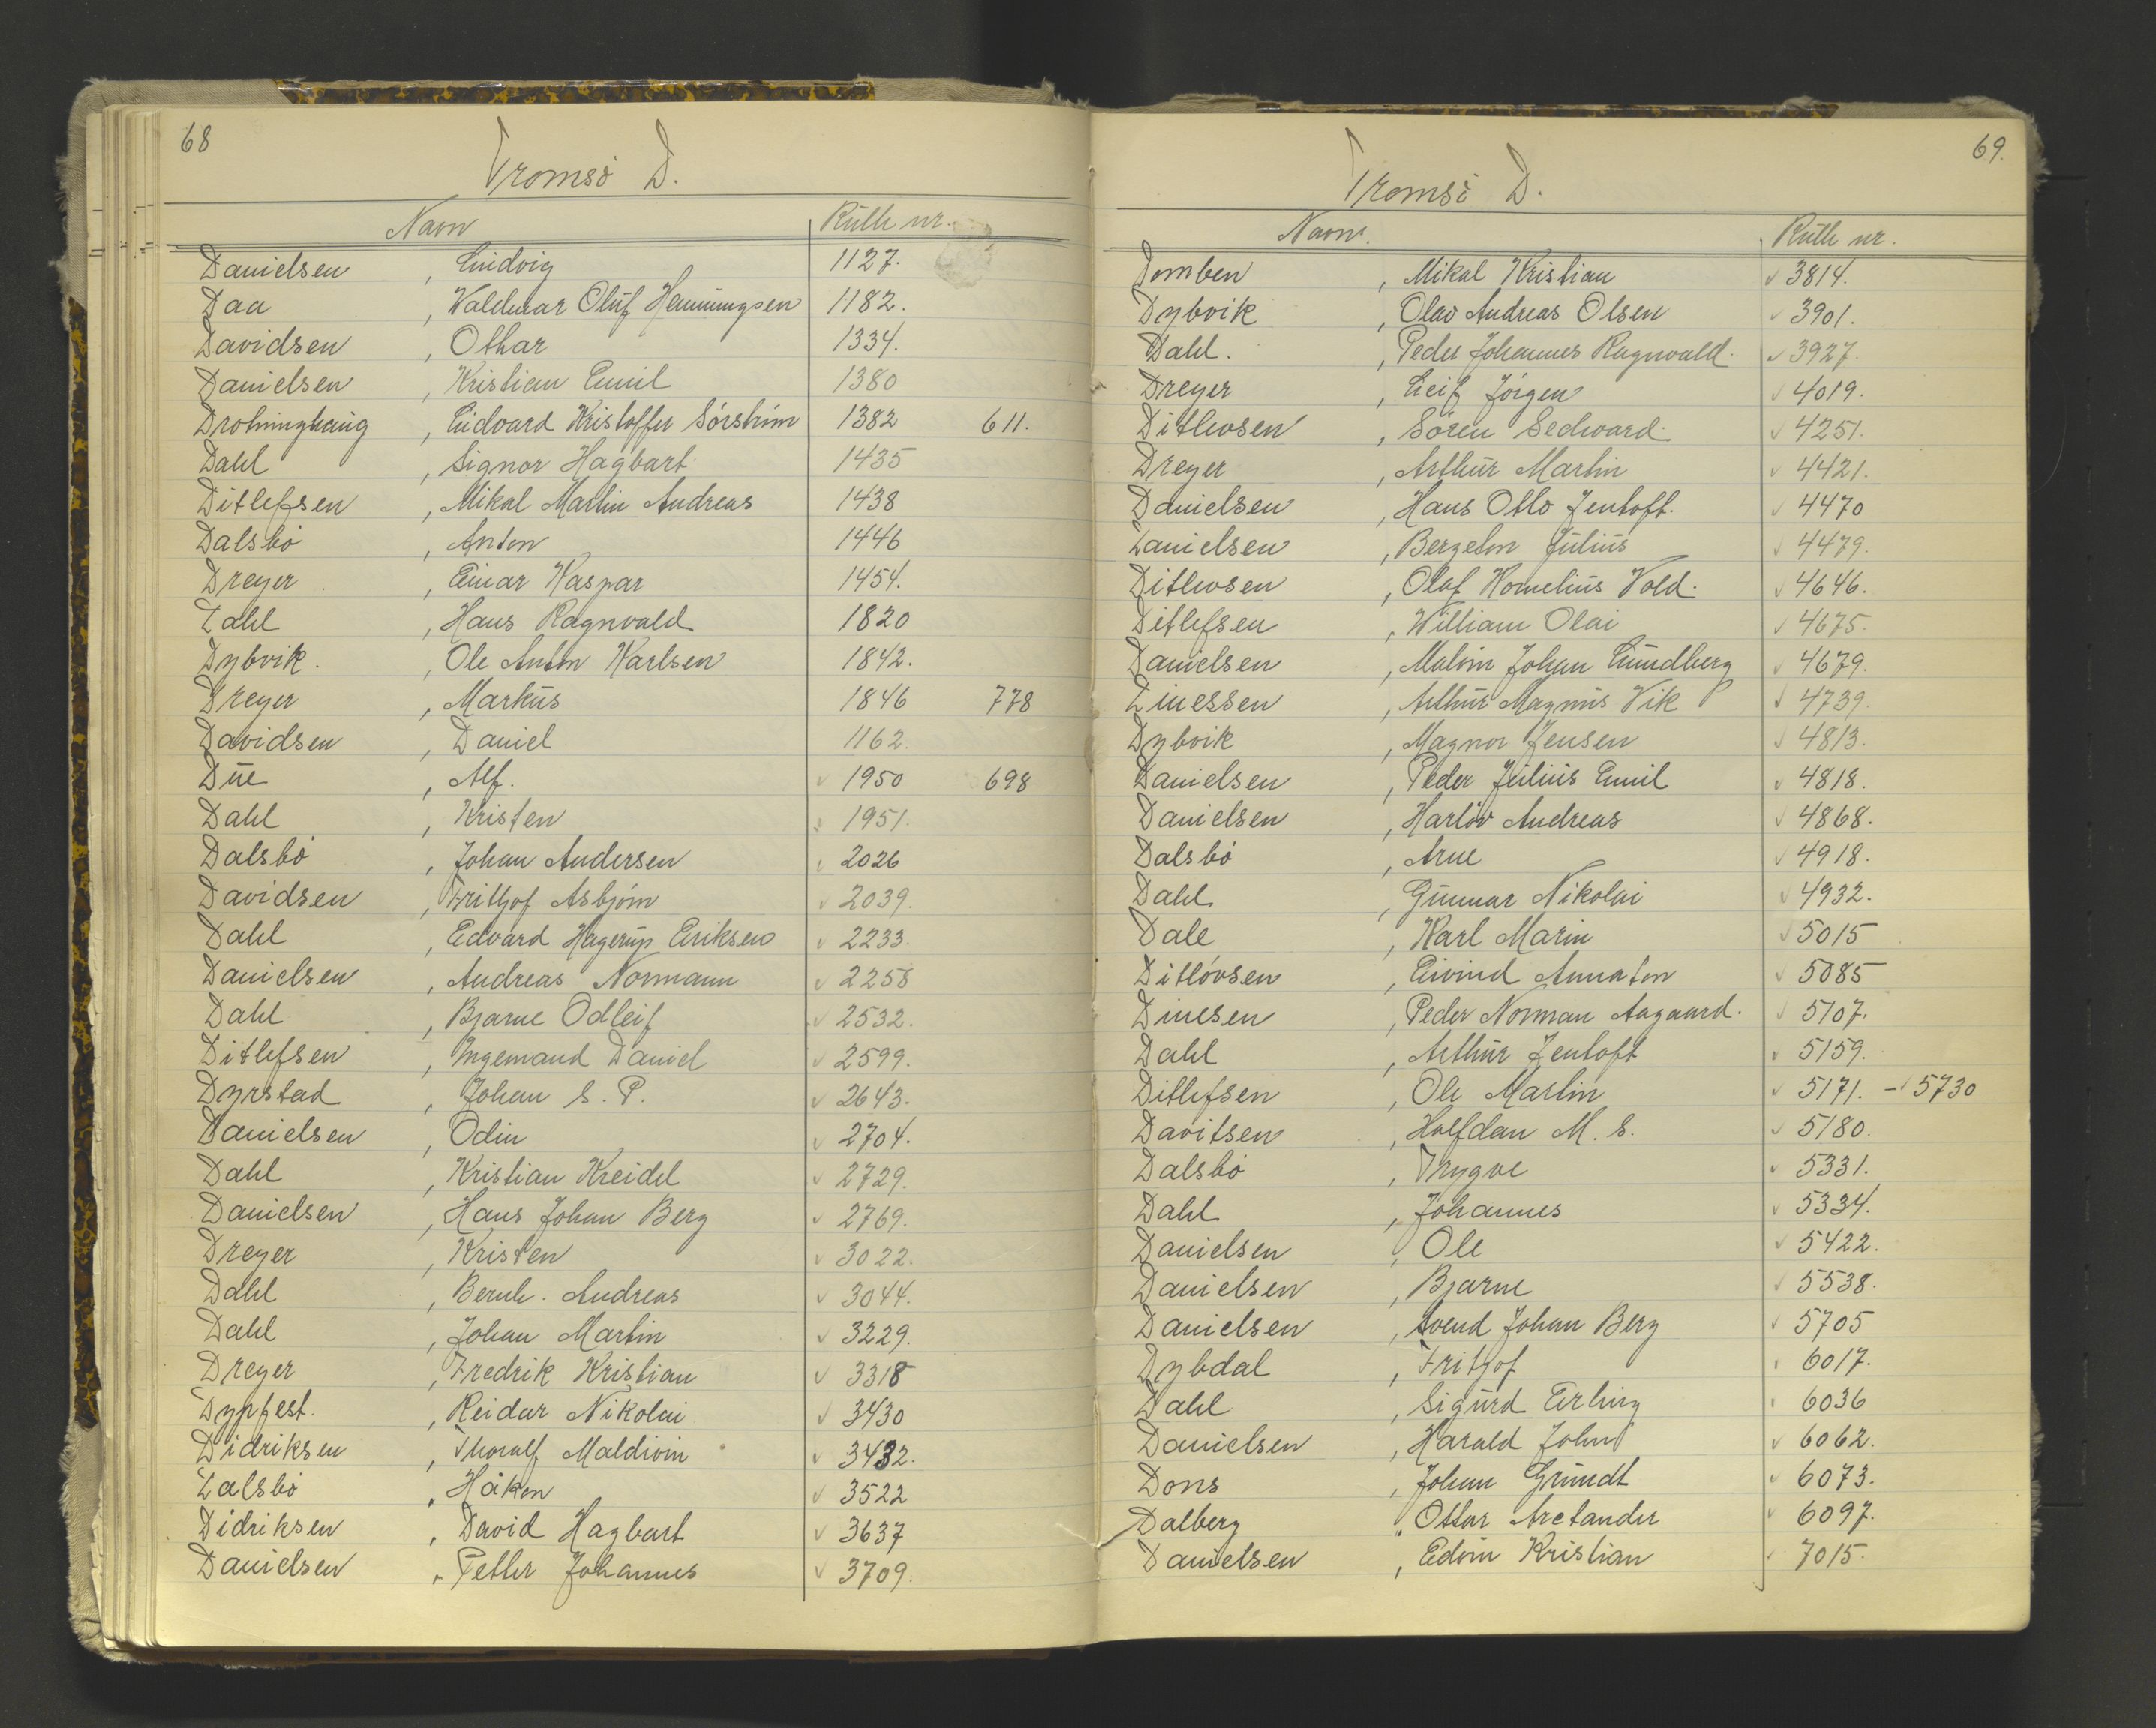 68
Tromsø D.
Navn Rulle nr.
Danielsen, Ludvig 1127.
Daa, Waldemar Oluf Henningsen 1182.
Davidsen, Othar 1334.
Danielsen, Kristian Emil 1380
Drotninghaug, Edvard Kristoffer Sørstrøm 1382 611.
Dahl, Signor Hagbart 1435
Ditlefsen, Mikal Martin Andreas 1438
Dalsbø, Anton 1446
Dreyer, Einar Kaspar 1454.
Dahl, Hans Ragnvald 1820
Dybvik., Ole Anton Karlsen 1842.
Dreyer, Markus 1846 778
Davidsen, Daniel 1162.
Due, Alf. 1950 698
Dahl, Kristen 1951.
Dalsbø, Johan Andersen 2026
Davidsen, Frithjof Asbjørn 2039.
Dahl, Edvard Hagerup Eriksen 2233.
Danielsen, Andreas Normann 2258
Dahl, Bjarne Odleif 2532.
Ditlefsen, Ingemand Daniel 2599.
Dyrstad, Johan S. P. 2643.
Danielsen, Odin 2704.
Dahl, Kristian Kreidel 2729.
Danielsen, Hans Johan Berg 2769.
Dreyer, Kristen 3022.
Dahl, Bernh. Andreas 3044.
Dahl, Johan Martin 3229.
Dreyer, Fredrik Kristian 3318
Dypfest., Reidar Nikolai 3430
Didriksen, Thoralf Maldivin 3432.
Dalsbø, Håkon 3522
Didriksen, David Hagbart 3637
Danielsen, Petter Johannes 3709.
69.
Tromsø D.
Navn. Rulle nr.
Domben, Mikal Kristian 3814.
Dybvik, Olav Andreas Olsen 3901.
Dahl., Peder Johannes Ragnvald. 3927.
Dreyer, Leif Jørgen 4019.
Ditlevsen, Søren Sedvard. 4251.
Dreyer, Arthur Martin 4421.
Danielsen, Hans Otto Jentoft. 4470
Danielsen, Bergeton Julius 4479.
Ditlevsen, Olaf Kornelius Vold. 4646.
Ditlefsen, William Olai 4675.
Danielsen, Malvin Johan Lundberg 4679.
Dinessen, Arthur Magnus Vik 4739.
Dybvik, Magnor Jensen 4813.
Danielsen, Peder Julius Emil 4818.
Danielsen, Harløv Andreas 4868.
Dalsbø, Arne 4918.
Dahl, Gunnar Nikolai 4932.
Dale, Karl Marin 5015
Ditløvsen, Eivind Annaton 5085
Dinesen, Peder Norman Aagaard. 5107.
Dahl, Arthur Jentoft 5159.
Ditlefsen, Ole Martin 5171. - 5730
Davitsen, Halfdan M. S. 5180.
Dalsbø, Trygve 5331.
Dahl, Johannes 5334.
Danielsen, Ole 5422.
Danielsen, Bjarne 5538.
Danielsen, Svend Johan Berg 5705
Dybdal, Frithjof 6017.
Dahl, Sigurd Erling 6036
Danielsen, Harald John 6062.
Dons, Johan Grundt 6073.
Dalberg, Ottar Aretander 6097.
Danielsen, Edvin Kristian 7015.